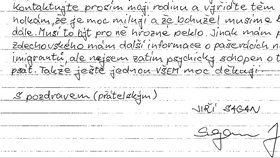 kontaktujte prosím mají rodinu a vyřiďte těm
holkám, že je moc miluji a že bohužel musíme
dále. Musí to být pro ně hrozné peklo. Jinak mám p
zdechovského mám další informace o pašerácích na
imigrantů, ale nejsem zatím psychicky schopen o t
psát. Takže ještě jednou VŠEM moc děkuji
S pozdravem (přátelským)
JIŘÍ SAGAN
Sagan J